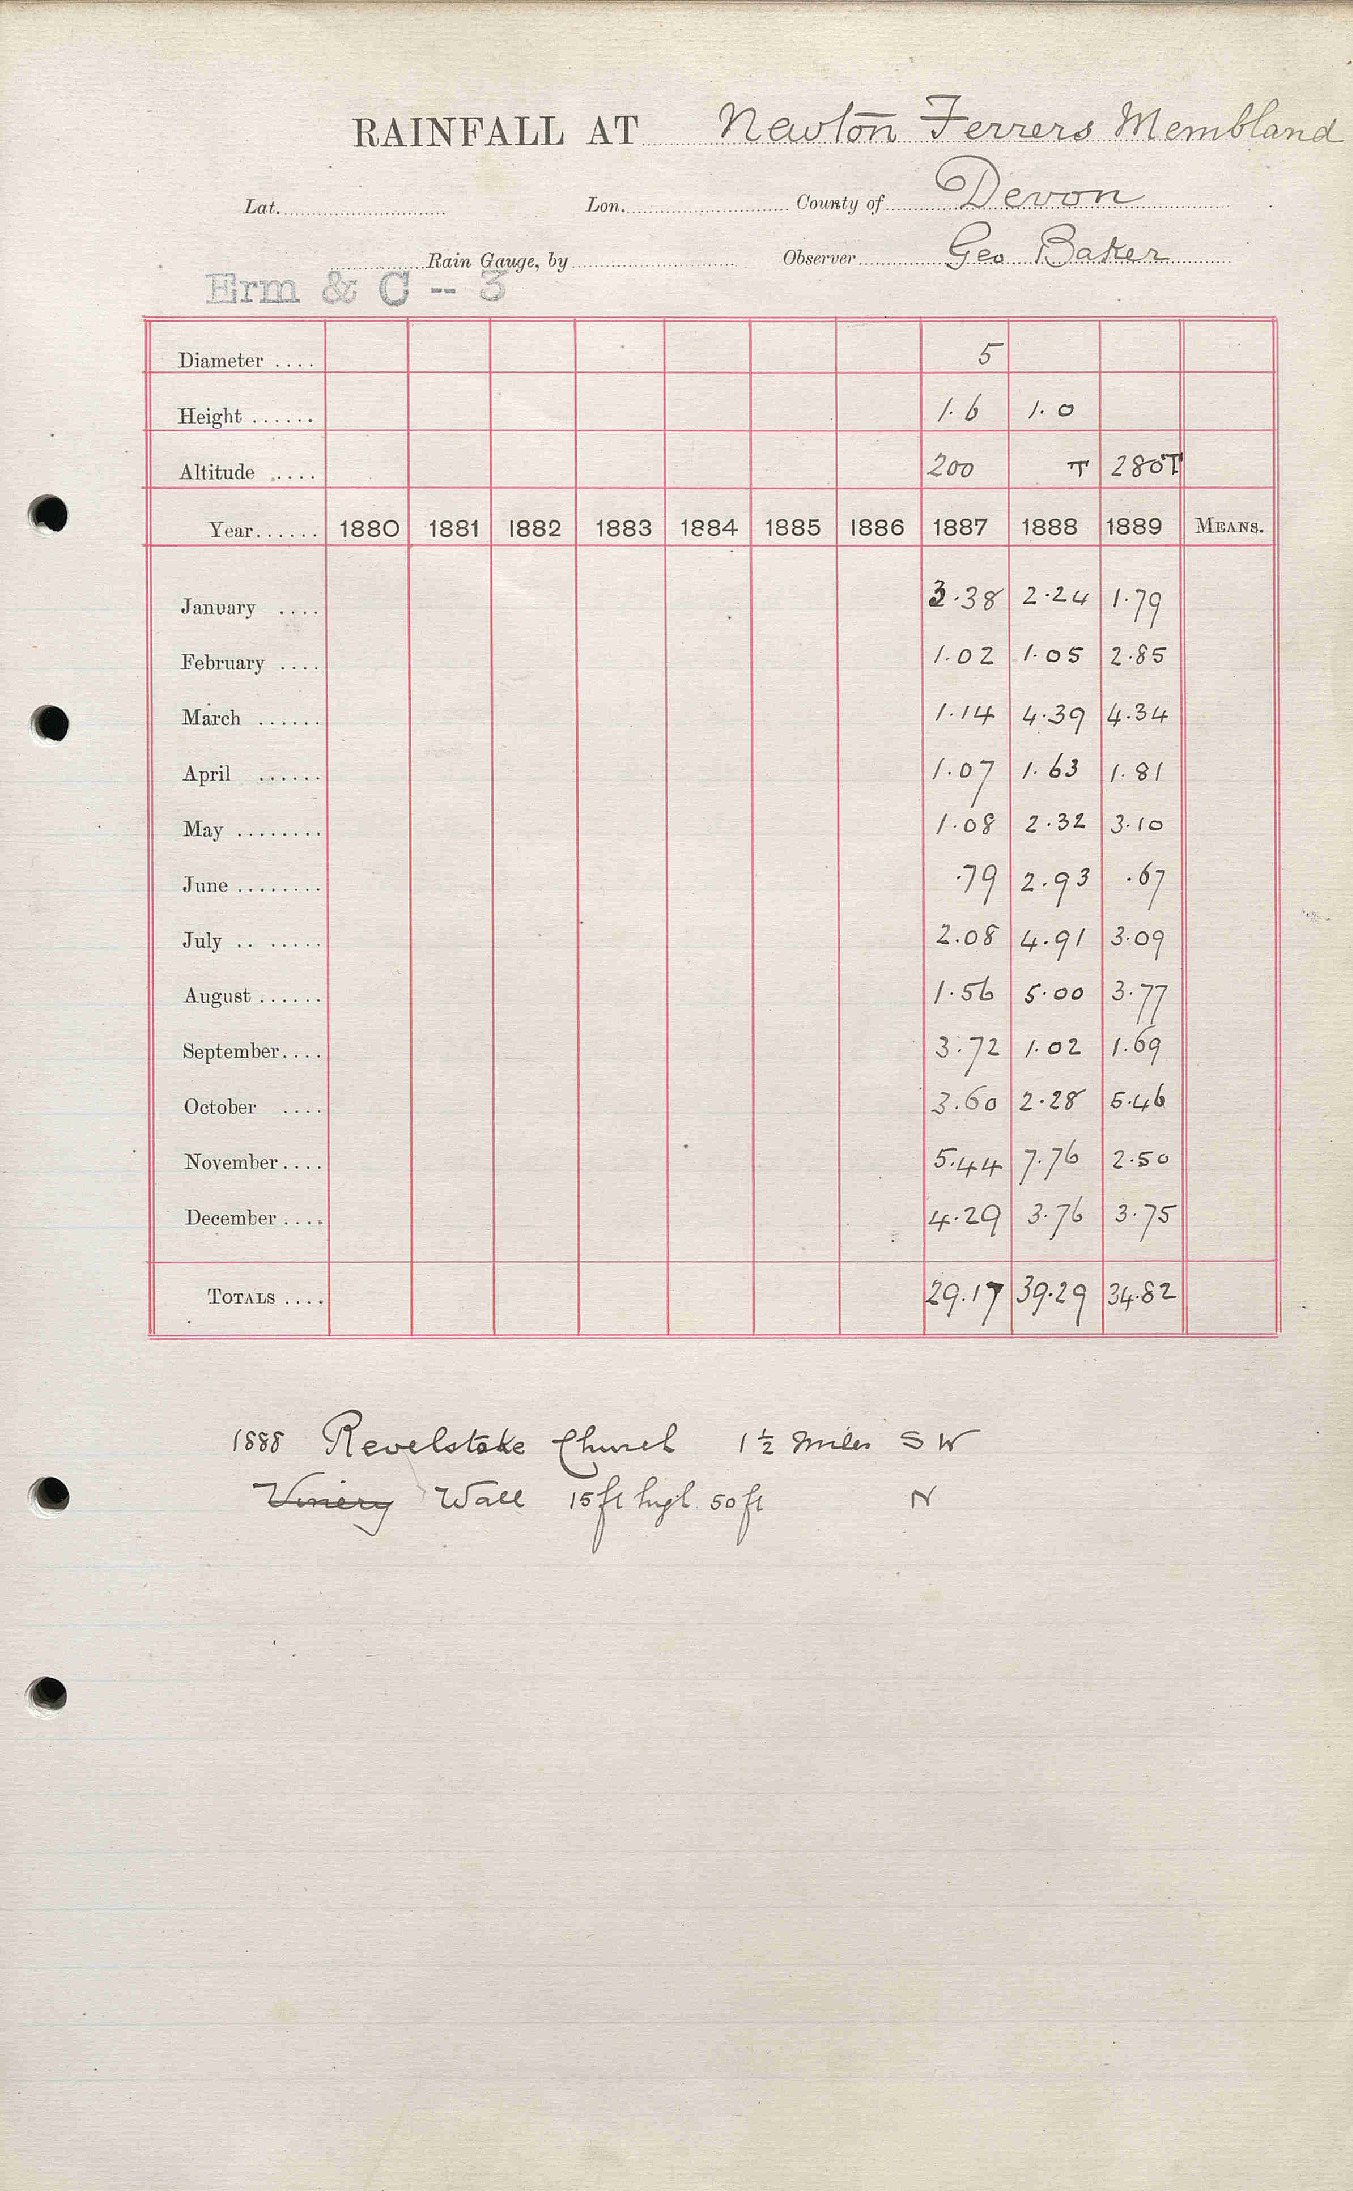 RAINFALL AT Newton Ferrers Membland
Lat. Lon. County of Devon
Rain Gauge, by Observer Geo Baker
Erm & C -- 3
Diameter .... 5
Height ...... 1.6 1.0
Altitude .... 200 T 280T
Year...... 1880 1881 1882 1883 1884 1885 1886 1887 1888 1889 MEANS.
January .... 3.38 2.24 1.79
February .... 1.02 1.05 2.85
March ...... 1.14 4.39 4.34
April ...... 1.07 1.63 1.81
May ........ 1.08 2.32 3.10
June ........ .79 2.93 .67
July .. ..... 2.08 4.91 3.09
August ...... 1.56 5.00 3.77
September.... 3.72 1.02 1.69
October .... 3.60 2.28 5.46
November.... 5.44 7.76 2.50
December .... 4.29 3.76 3.75
TOTALS .... 29.17 39.29 34.82
1888 Revelstoke Church 1½ miles SW
Vinery Wall 15ft high 50ft N